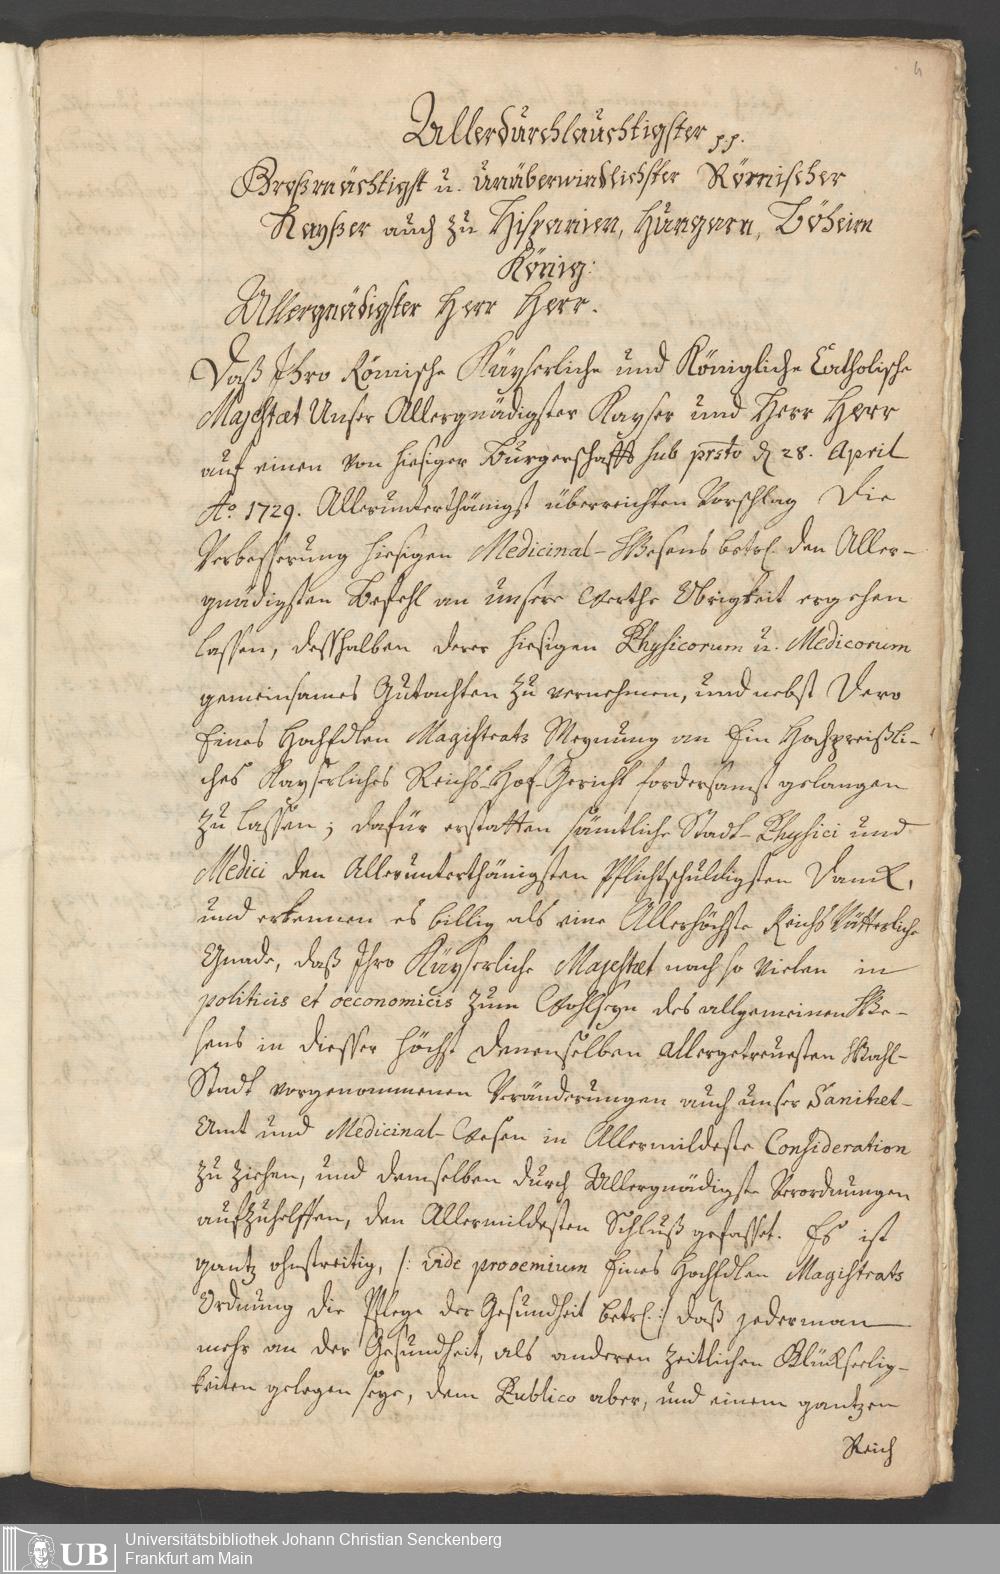 4
Allerdurchlauchtigster pp.
Großmächtigst u. unüberwindlichster Römischer
Kayßer auch zu Hispanien, Hungarn, Böheim
König:
Allergnädigster Herr Herr.
Daß Ihro Römische Käyserliche und Königliche Catholische
Majestæt Unser Allergnädigster Kayser und Herr Herr
auf einen von hiesiger Burgerschafft sub prsto d 28. April
Ao. 1729. Allerunterthänigst überreichten Vorschlag die
Verbesserung hiesigen Medicinal-Wesens betrl. den Aller-
gnädigsten Befehl an unsere Werthe Obrigkeit ergehen
lassen, desshalben derer hiesigen Physicorum u. Medicorum
gemeinsames Gutachten zu vernehmen, und nebst Dero
Eines HochEdlen Magistrats Meynung an Ein Hochpreißli-
ches Kayserliches Reichs-Hof-Gericht fordersamst gelangen
zu lassen; dafür erstatten sämtliche Stadt-Physici und
Medici den Allerunterthänigsten Pflichtschuldigsten Danck,
und erkennen es billig als eine Allerhöchste Reichs Vätterliche
Gnade, daß Ihro Käyserliche Majestæt nach so vielen in
politicis et oeconomicis zum Wohlseyn des allgemeinen We-
sens in diesser höchst Denenselben allergetreuesten Wahl-
Stadt vorgenommenen Veränderungen auch unser Sanitet-
Amt und Medicinal-Wesen in Allermildeste Consideration
zu ziehen, und demselben durch Allergnädigste Verordnungen
aufzuhelffen, den Allermildesten Schluß gefasset. Es ist
gantz ohnstreitig, /: vide prooemium Eines HochEdlen Magistrats
Ordnung die Pflege der Gesundheit betrl. :/ daß jederman
mehr an der Gesundheit, als anderen zeitlichen Glückseelig-
keiten gelegen seye, dem Publico aber, und einem gantzen
Reich
UB
Universitätsbibliothek Johann Christian Senckenberg
Frankfurt am Main